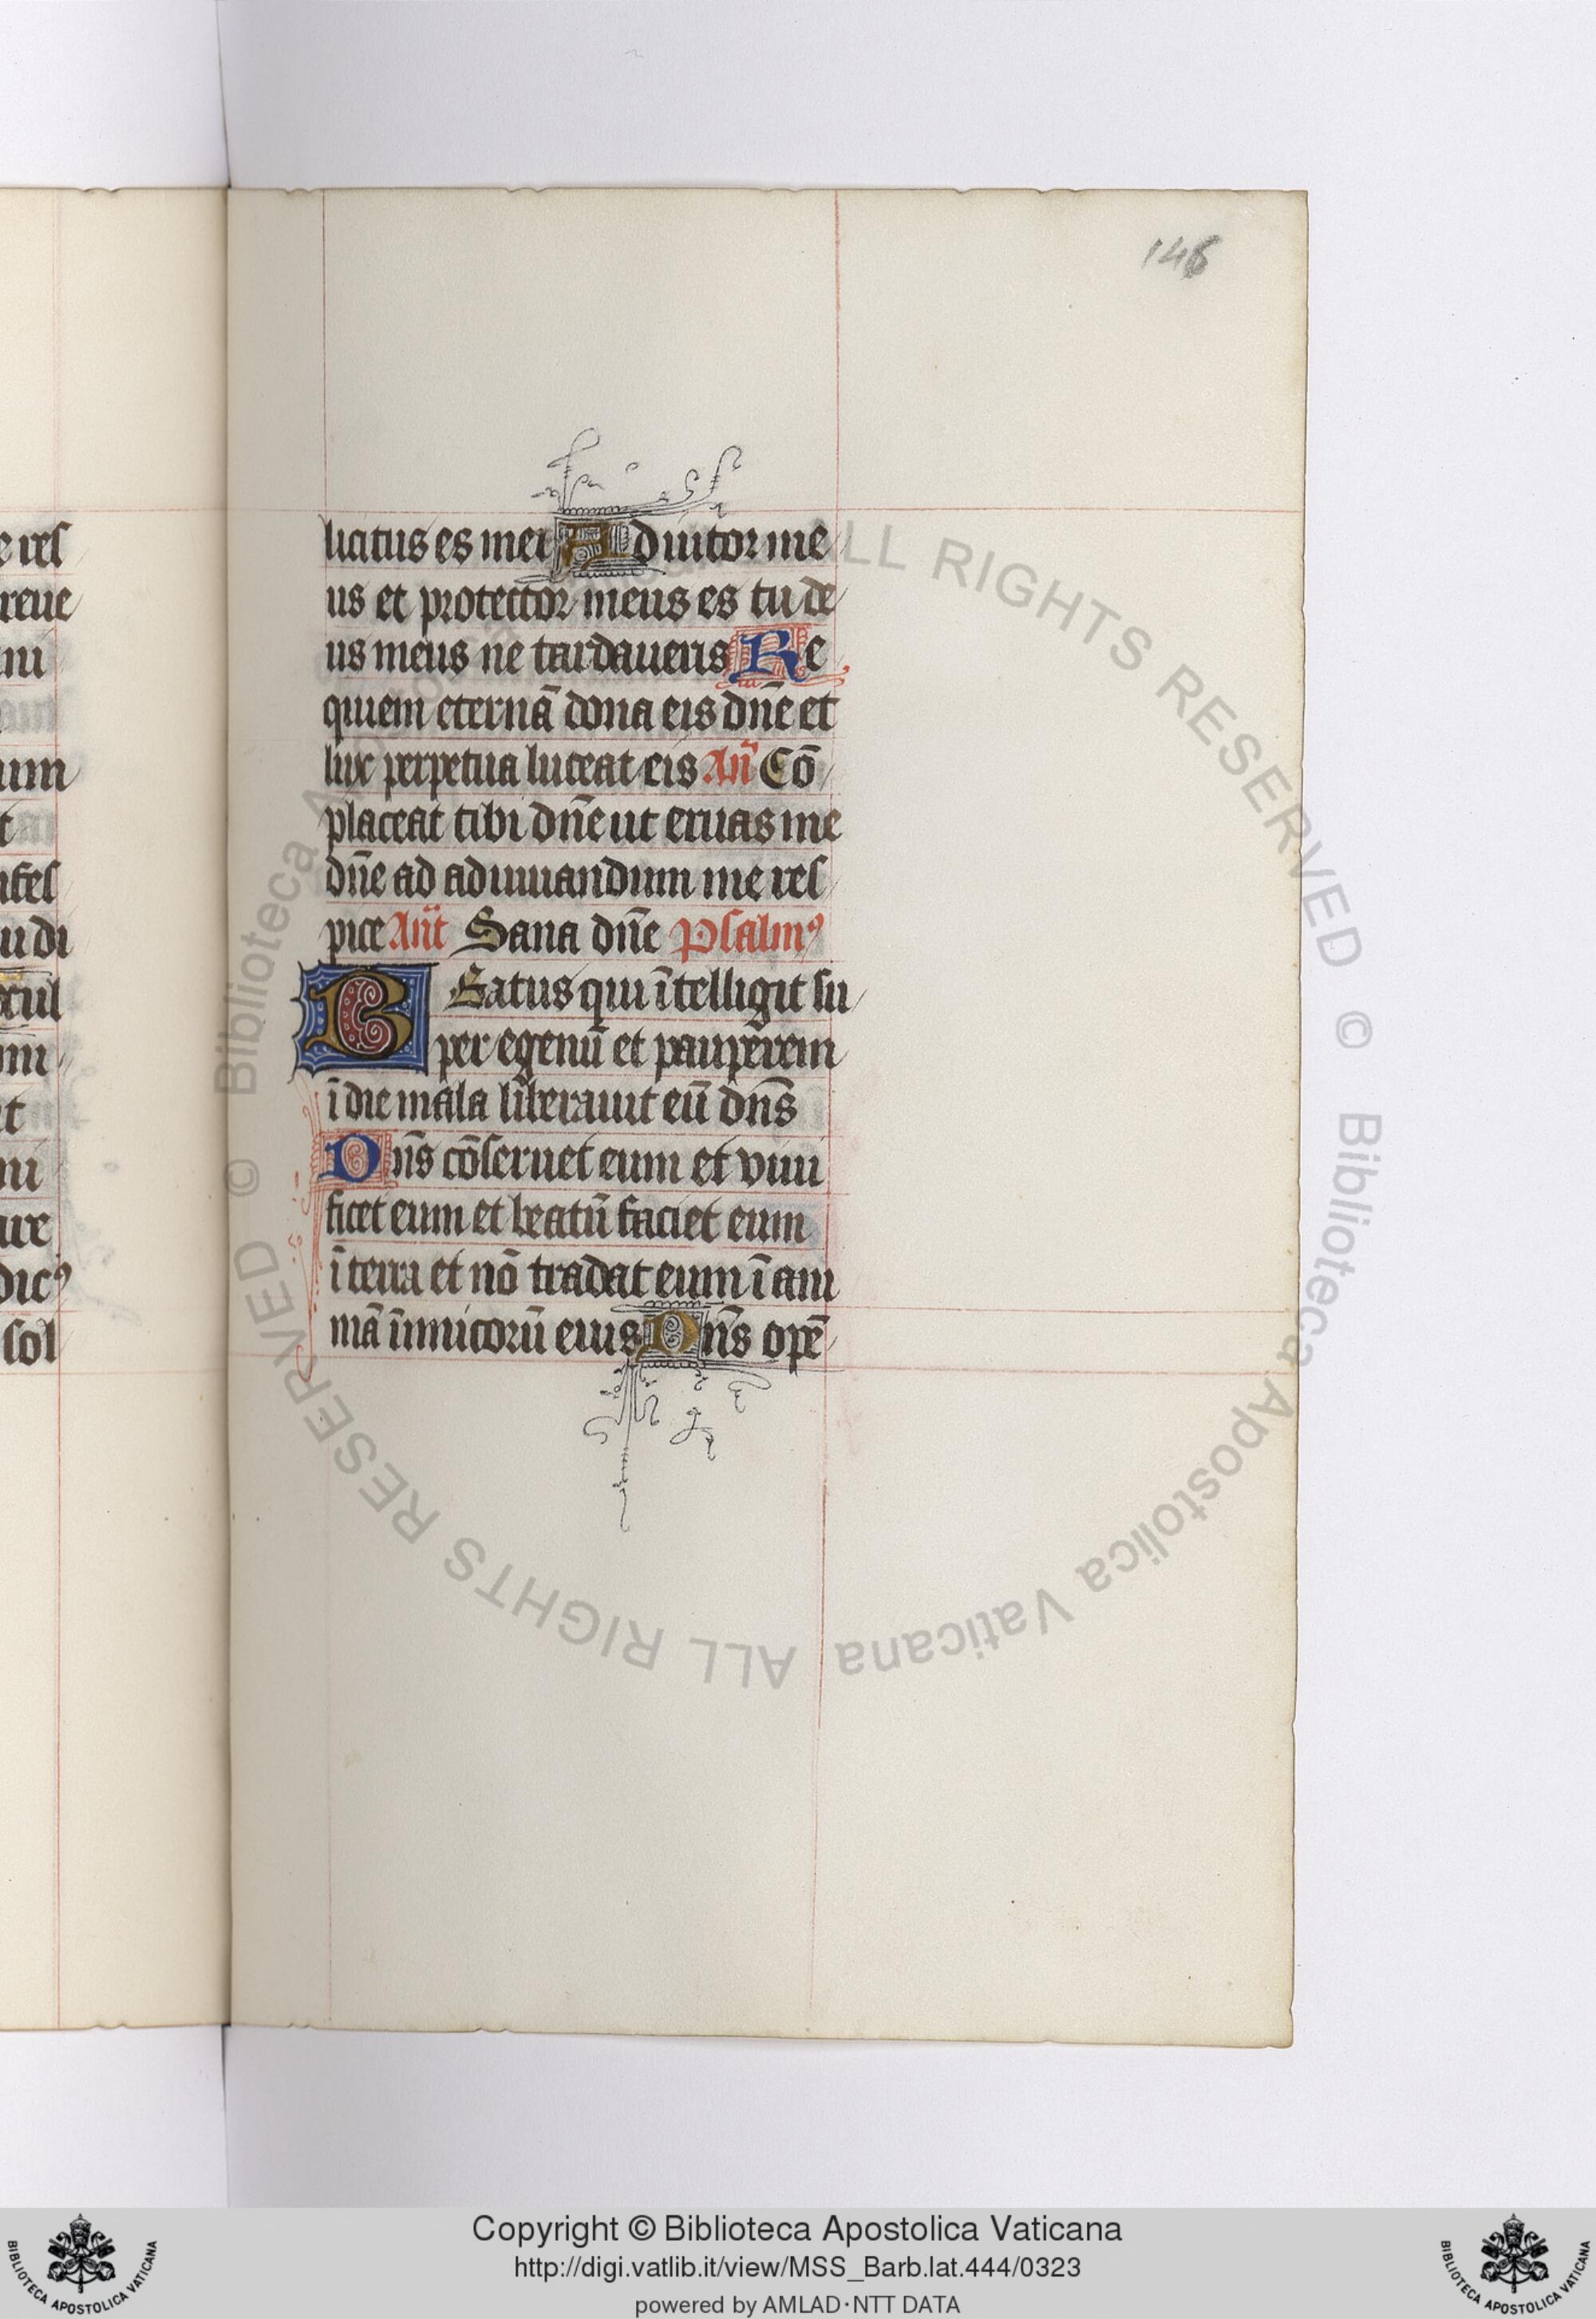 146
licitus es mei Adiutor me
us et protector meus es tu de
us meus ne tardaueris Re
quiem eternā dona eis dn̄e et
lux perpetua luceat eis An̄ Cō
placeat tibi dn̄e ut eruas me
dn̄e ad adiuuandum me res
pice An̄t Sana dn̄e Psalmꝰ
BEatus qui ītelligit su
per egenū et pauperem
ī die mala liberauit eū dn̄s
Dn̄s cōseruet eum et viui
ficet eum et beatū faciet eum
ī terra et nō tradat eum ī ani
mā inimicorū eius Dn̄s opē
e res
reue
ni
um
t
u di
ni
t
ni
ure
dicꝰ
sol
© Biblioteca Apostolica Vaticana ALL RIGHTS RESERVED © Biblioteca Apostolica Vaticana ALL RIGHTS RESERVED
Copyright © Biblioteca Apostolica Vaticana
http://digi.vatlib.it/view/MSS_Barb.lat.444/0323
powered by AMLAD·NTT DATA
BIBLIOTECA APOSTOLICA VATICANA
BIBLIOTECA APOSTOLICA VATICANA